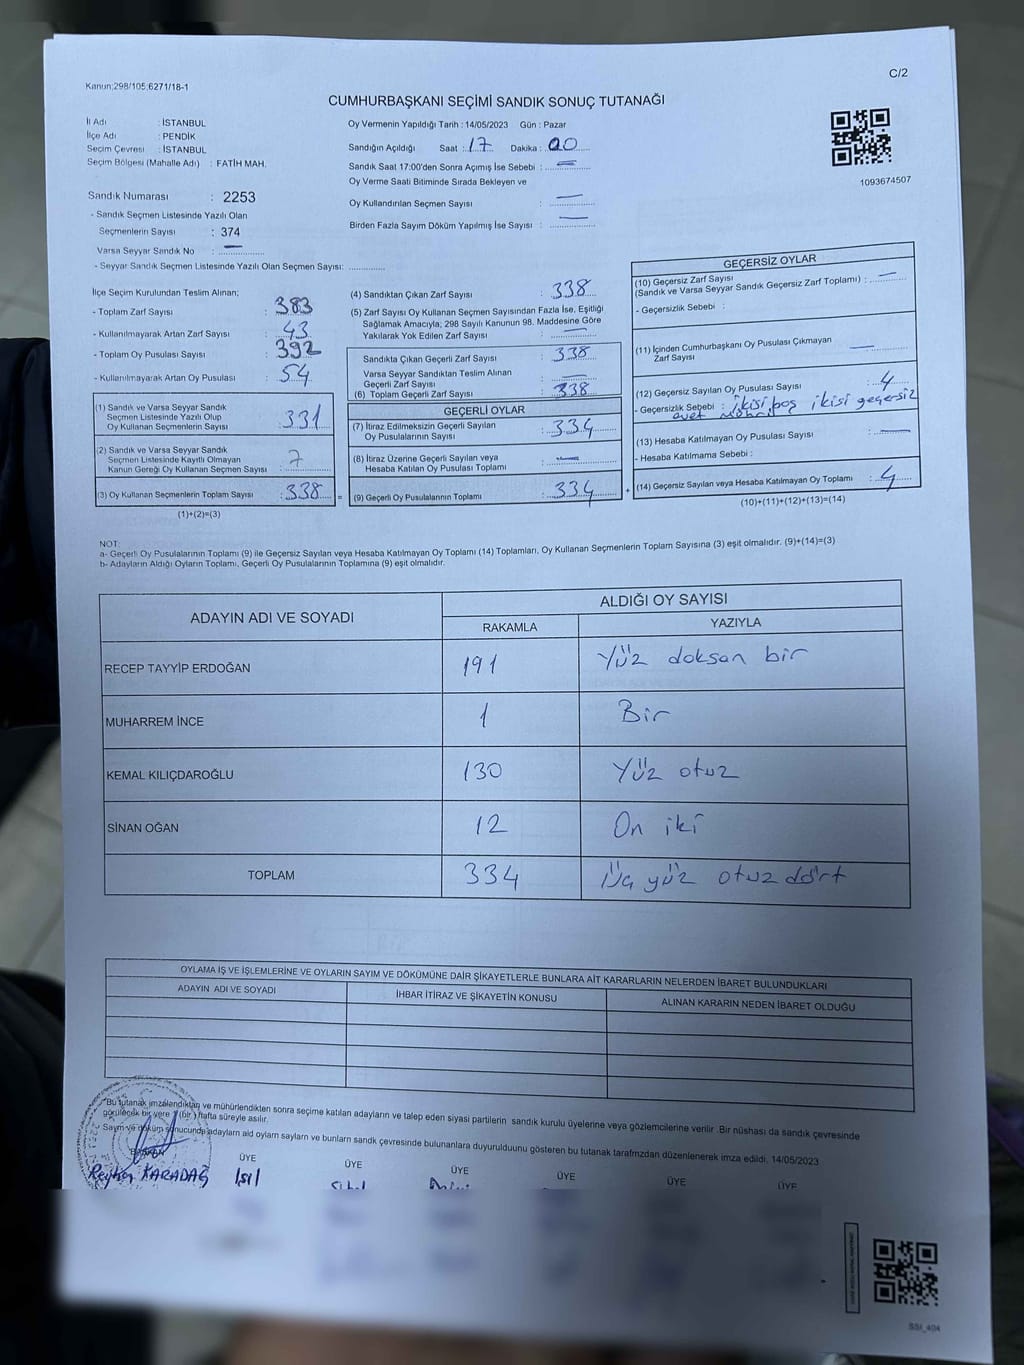 Kanun;298/105;6271/18-1
C/2
CUMHURBAŞKANI SEÇİMİ SANDIK SONUÇ TUTANAĞI
İl Adı : İSTANBUL
İlçe Adı : PENDİK
Seçim Çevresi : İSTANBUL
Seçim Bölgesi (Mahalle Adı) : FATİH MAH.
Sandık Numarası : 2253
- Sandık Seçmen Listesinde Yazılı Olan
Seçmenlerin Sayısı : 374
Varsa Seyyar Sandık No : —
- Seyyar Sandık Seçmen Listesinde Yazılı Olan Seçmen Sayısı: ............
Oy Vermenin Yapıldığı Tarih : 14/05/2023 Gün : Pazar
Sandığın Açıldığı Saat : 17 Dakika : 00
Sandık Saat 17:00'den Sonra Açımış İse Sebebi : —
Oy Verme Saati Bitiminde Sırada Bekleyen ve
Oy Kullandırılan Seçmen Sayısı : —
Birden Fazla Sayım Döküm Yapılmış İse Sayısı : —
1093674507
İlçe Seçim Kurulundan Teslim Alınan;
- Toplam Zarf Sayısı : 383
- Kullanılmayarak Artan Zarf Sayısı : 43
- Toplam Oy Pusulası Sayısı : 392
- Kullanılmayarak Artan Oy Pusulası : 54
(1) Sandık ve Varsa Seyyar Sandık
Seçmen Listesinde Yazılı Olup
Oy Kullanan Seçmenlerin Sayısı : 331
(2) Sandık ve Varsa Seyyar Sandık
Seçmen Listesinde Kayıtlı Olmayan
Kanun Gereği Oy Kullanan Seçmen Sayısı : 7
(3) Oy Kullanan Seçmenlerin Toplam Sayısı : 338 =
(1)+(2)=(3)
(4) Sandıktan Çıkan Zarf Sayısı : 338
(5) Zarf Sayısı Oy Kullanan Seçmen Sayısından Fazla İse, Eşitliği
Sağlamak Amacıyla; 298 Sayılı Kanunun 98. Maddesine Göre
Yakılarak Yok Edilen Zarf Sayısı : —
Sandıkta Çıkan Geçerli Zarf Sayısı : 338
Varsa Seyyar Sandıktan Teslim Alınan
Geçerli Zarf Sayısı : —
(6) Toplam Geçerli Zarf Sayısı : 338
GEÇERLİ OYLAR
(7) İtiraz Edilmeksizin Geçerli Sayılan
Oy Pusulalarının Sayısı : 334
(8) İtiraz Üzerine Geçerli Sayılan veya
Hesaba Katılan Oy Pusulası Toplamı : —
(9) Geçerli Oy Pusulalarının Toplamı : 334 +
GEÇERSİZ OYLAR
(10) Geçersiz Zarf Sayısı
(Sandık ve Varsa Seyyar Sandık Geçersiz Zarf Toplamı) : —
- Geçersizlik Sebebi :
(11) İçinden Cumhurbaşkanı Oy Pusulası Çıkmayan
Zarf Sayısı : —
(12) Geçersiz Sayılan Oy Pusulası Sayısı : 4
- Geçersizlik Sebebi : ikisi boş ikisi geçersiz
evet
(13) Hesaba Katılmayan Oy Pusulası Sayısı : —
- Hesaba Katılmama Sebebi :
(14) Geçersiz Sayılan veya Hesaba Katılmayan Oy Toplamı : 4
(10)+(11)+(12)+(13)=(14)
NOT:
a- Geçerli Oy Pusulalarının Toplamı (9) ile Geçersiz Sayılan veya Hesaba Katılmayan Oy Toplamı (14) Toplamları, Oy Kullanan Seçmenlerin Toplam Sayısına (3) eşit olmalıdır. (9)+(14)=(3)
b- Adayların Aldığı Oyların Toplamı, Geçerli Oy Pusulalarının Toplamına (9) eşit olmalıdır.
ADAYIN ADI VE SOYADI ALDIĞI OY SAYISI
RAKAMLA YAZIYLA
RECEP TAYYİP ERDOĞAN 191 Yüz doksan bir
MUHARREM İNCE 1 Bir
KEMAL KILIÇDAROĞLU 130 Yüz otuz
SİNAN OĞAN 12 On iki
TOPLAM 334 Üç yüz otuz dört
OYLAMA İŞ VE İŞLEMLERİNE VE OYLARIN SAYIM VE DÖKÜMÜNE DAİR ŞİKAYETLERLE BUNLARA AİT KARARLARIN NELERDEN İBARET BULUNDUKLARI
ADAYIN ADI VE SOYADI İHBAR İTİRAZ VE ŞİKAYETİN KONUSU ALINAN KARARIN NEDEN İBARET OLDUĞU
"Bu tutanak imzalandıktan ve mühürlendikten sonra seçime katılan adayların ve talep eden siyasi partilerin sandık kurulu üyelerine veya gözlemcilerine verilir .Bir nüshası da sandık çevresinde
görülecek bir yere 1 (bir ) hafta süreyle asılır.
Sayım ve döküm sonucunda adayların ald oylarn saylarn ve bunlarn sandık çevresinde bulunanlara duyurulduunu gösteren bu tutanak tarafmzdan düzenlenerek imza edildi. 14/05/2023
BAŞKAN ÜYE ÜYE ÜYE ÜYE ÜYE ÜYE
Reyhan KARADAĞ Işıl
SSI_404